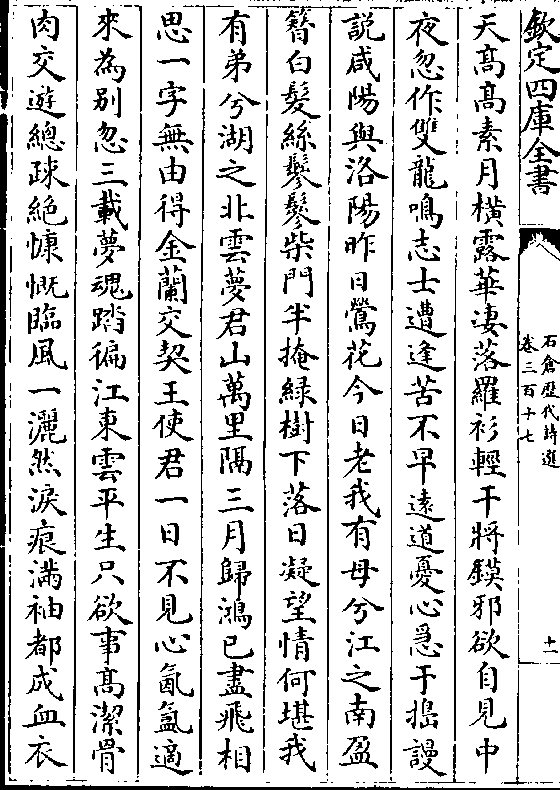 欽定四庫全書
石倉歴代詩選
卷三百十七
十一
天髙髙素月橫露華凄落羅衫輕干將鏌邪欲自見中
夜忽作雙龍鳴志士遭逢苦不早逺道憂心惄于擣謾
説咸陽與洛陽昨日鶯花今日老我有母兮江之南盈
簪白髮絲鬖鬖柴門半掩緑樹下落日凝望情何堪我
有弟兮湖之北雲夢君山萬里隔三月歸鴻已盡飛相
思一字無由得金蘭交契王使君一日不見心氤氳適
來為别忽三載夢魂踏徧江東雲平生只欲事髙潔骨
肉交遊總踈絶慷慨臨風一灑然淚痕滿袖都成血衣